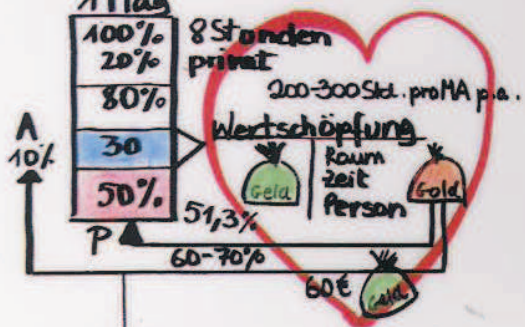 1 Tag
100%
20%
8 Stunden
privat
80%
200-300 Std. pro MA p.a.
Wertschöpfung
A
10%
30
Geld
Raum
Zeit
Person
Gold
50%
51,3%
P
60-70%
60€
Geld